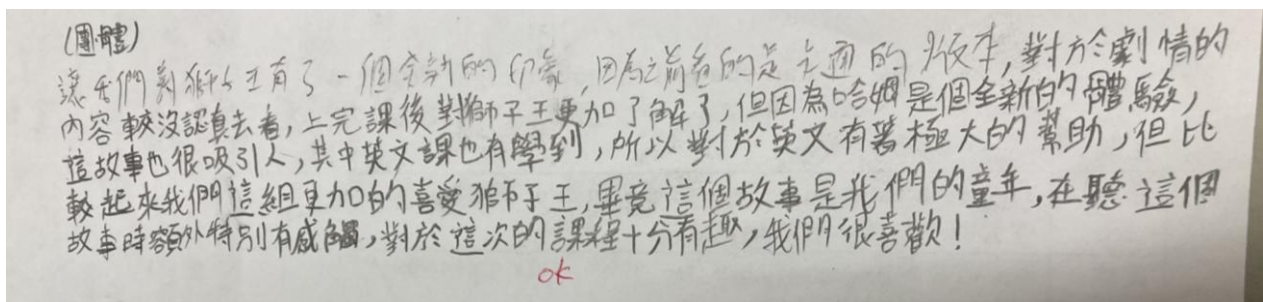 (團體)
讓我們對獅子王有了一個全新的印象,因為之前看的是卡通的版本,對於劇情的
內容較沒認真去看,上完課後對獅子王更加了解了,但因為哈姆是個全新的體驗,
這故事也很吸引人,其中英文課也有學到,所以對於英文有著極大的幫助,但比
較起來我們這組更加的喜愛獅子王,畢竟這個故事是我們的童年,在聽這個
故事時額外特別有感觸,對於這次的課程十分有趣,我們很喜歡!
ok